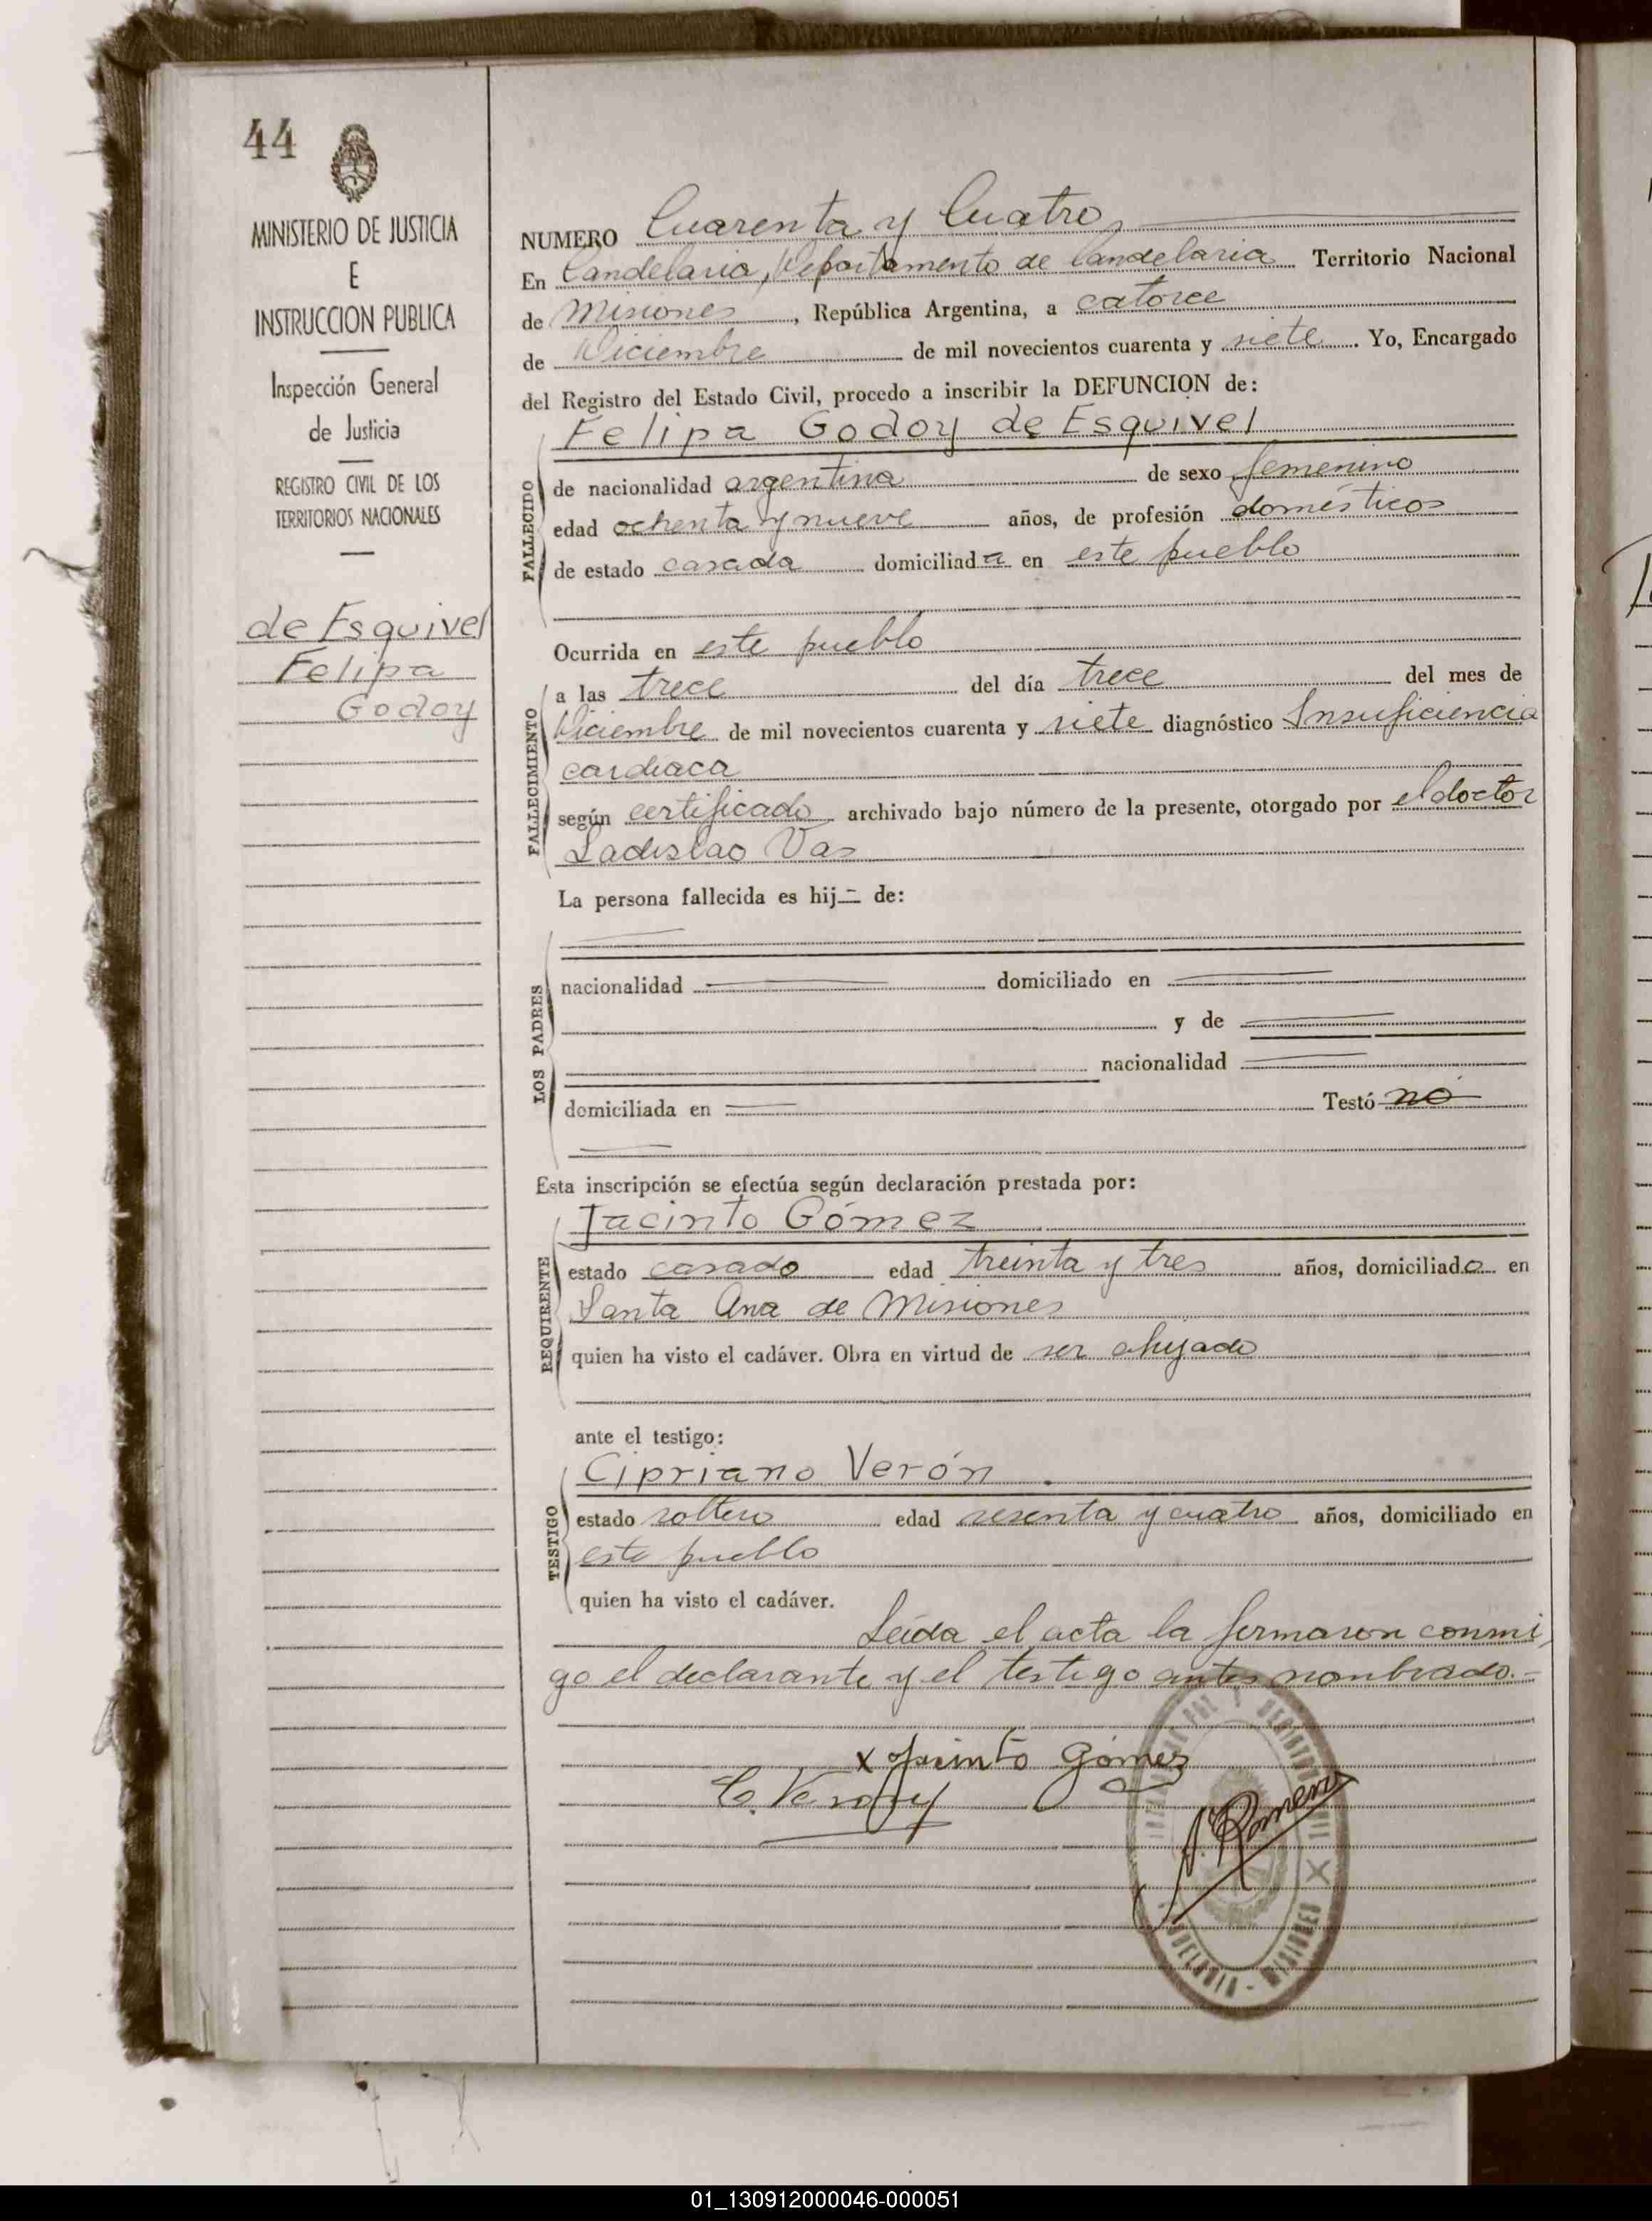 44
MINISTERIO DE JUSTICIA
E
INSTRUCCION PUBLICA
Inspección General
de Justicia
REGISTRO CIVIL DE LOS
TERRITORIOS NACIONALES
de Esquivel
Felipa
Godoy
NUMERO Cuarenta y Cuatro
En Candelaria, Departamento de Candelaria Territorio Nacional
de Misiones, República Argentina, a catorce
de Diciembre de mil novecientos cuarenta y siete. Yo, Encargado
del Registro del Estado Civil, procedo a inscribir la DEFUNCION de:
Felipa Godoy de Esquivel
FALLECIDO
de nacionalidad argentina de sexo femenino
edad ochenta y nueve años, de profesión domésticos
de estado casada domiciliada en este pueblo
Ocurrida en este pueblo
FALLECIMIENTO
a las trece del día trece del mes de
Diciembre de mil novecientos cuarenta y siete diagnóstico Insuficiencia
cardiaca
según certificado archivado bajo número de la presente, otorgado por el doctor
Ladislao Vas
La persona fallecida es hij— de:
LOS PADRES
nacionalidad domiciliado en
y de
nacionalidad
domiciliada en Testó no
Esta inscripción se efectúa según declaración prestada por:
Jacinto Gómez
REQUIRENTE
estado casado edad treinta y tres años, domiciliado en
Santa Ana de Misiones
quien ha visto el cadáver. Obra en virtud de ser ahijado
ante el testigo:
Cipriano Verón
TESTIGO
estado soltero edad sesenta y cuatro años, domiciliado en
este pueblo
quien ha visto el cadáver.
Leida el acta la firmaron conmi
go el declarante y el testigo antes nombrado.-
x Jacinto Gómez
C. Verón
CANDELARIA - MISIONES
01_130912000046-000051